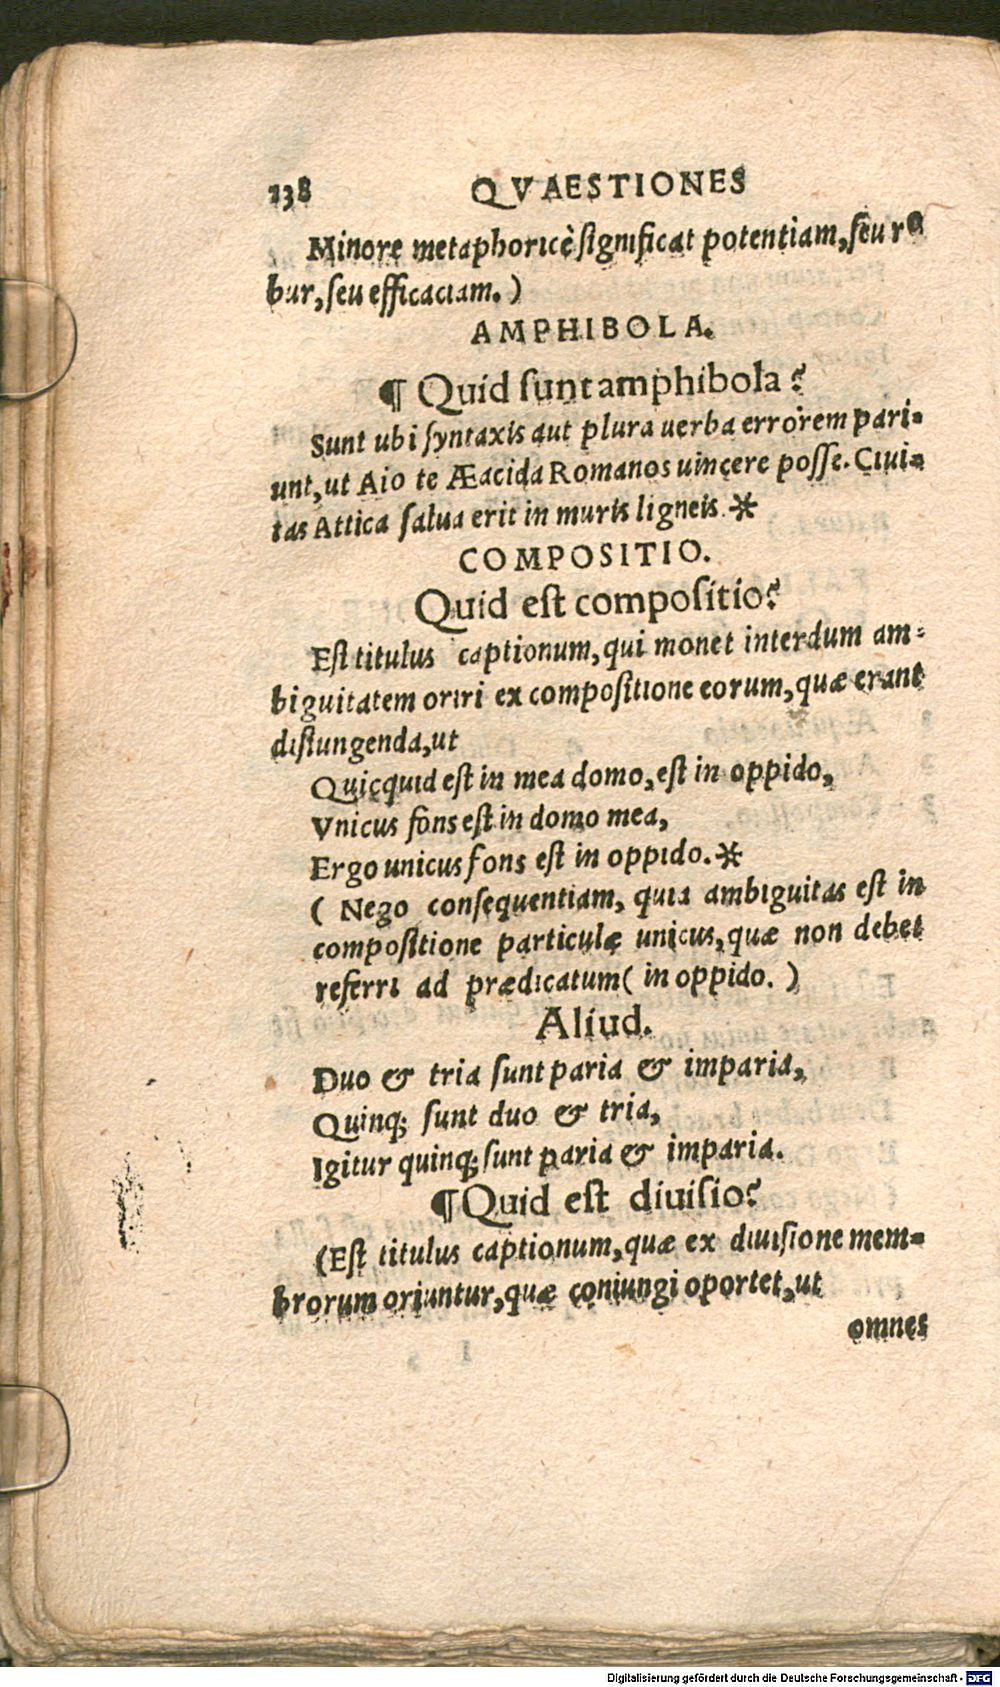 138 QVAESTIONES
Minore metaphoricè significat potentiam, seu ro
bur, seu efficaciam. )
AMPHIBOLA.
¶ Quid sunt amphibola?
Sunt ubi syntaxis aut plura uerba errorem pari-
unt, ut Aio te Æacida Romanos uincere posse. Ciui-
tas Attica salua erit in muris ligneis.*
COMPOSITIO.
Quid est compositio?
Est titulus captionum, qui monet interdum am-
biguitatem oriri ex compositione eorum, quæ erant
distungenda, ut
Quicquid est in mea domo, est in oppido,
Vnicus fons est in domo mea,
Ergo unicus fons est in oppido.*
( Nego consequentiam, quia ambiguitas est in
compositione particulæ unicus, quæ non debet
referri ad prædicatum ( in oppido. )
Aliud.
Duo & tria sunt paria & imparia,
Quinq; sunt duo & tria,
Igitur quinq; sunt paria & imparia.
¶ Quid est diuisio?
(Est titulus captionum, quæ ex diuisione mem-
brorum oriuntur, quæ coniungi oportet, ut
omnes
Digitalisierung gefördert durch die Deutsche Forschungsgemeinschaft - DFG